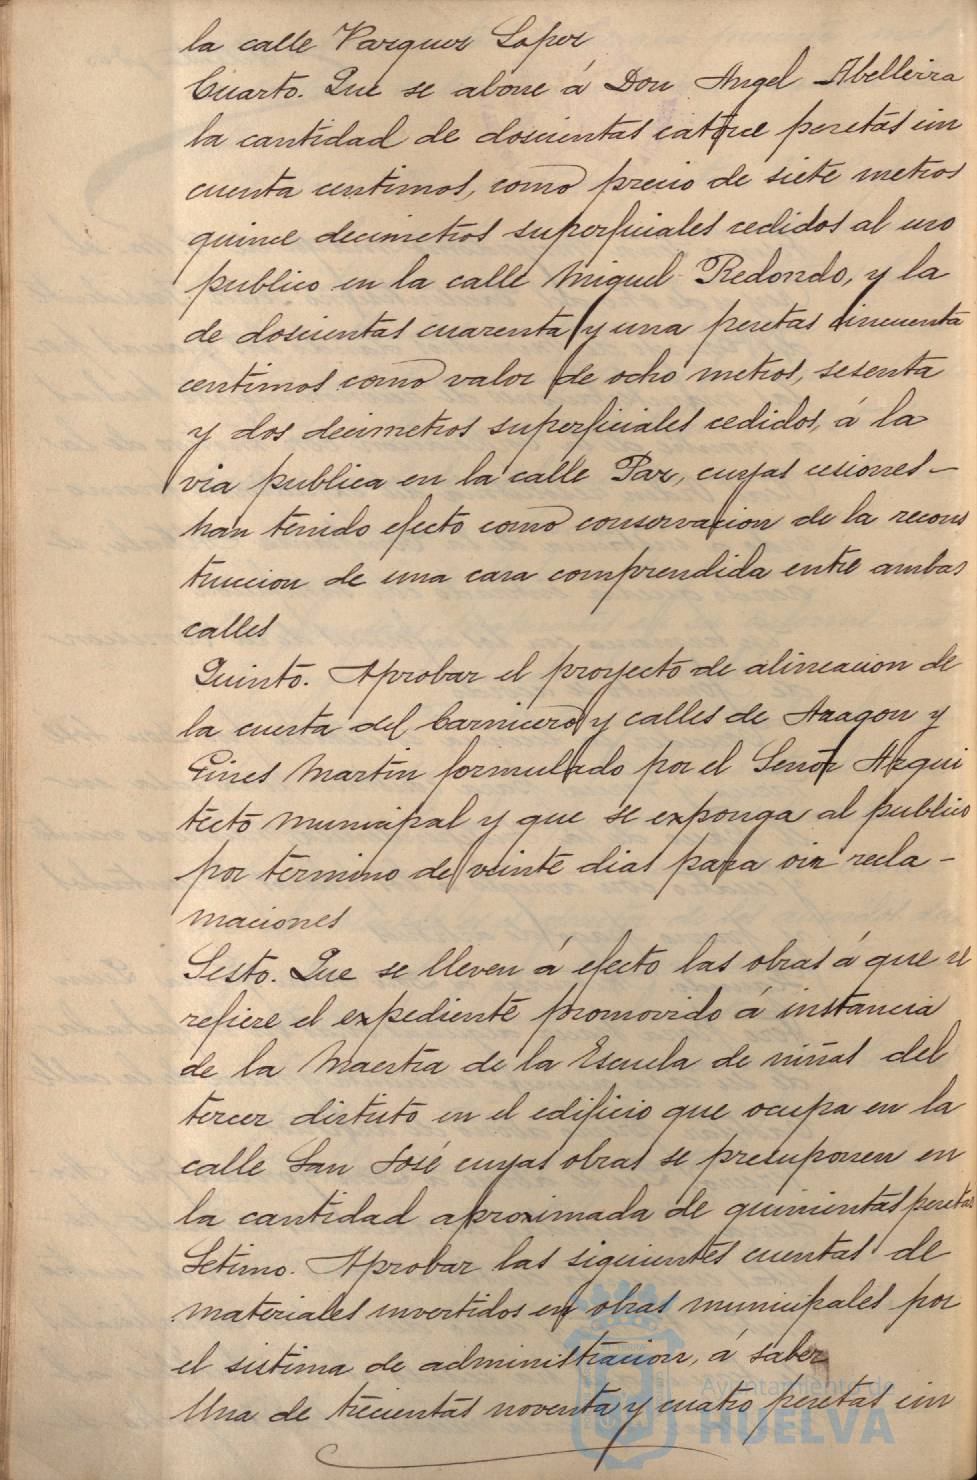 la calle Vazquez Lopez
Cuarto. Que se abone á Don Angel Abelleira
la cantidad de doscientas catorce pesetas cin
cuenta centimos, como precio de siete metros
quince decimetros superficiales cedidos al uso
publico en la calle Miguel Redondo, y la
de doscientas cuarenta y una pesetas cincuenta
centimos como valor de ocho metros, sesenta
y dos decimetros superficiales cedidos, á la
via publica en la calle Paz, cuyas cesiones -
han tenido efecto como conservacion de la recons
truccion de una casa comprendida entre ambas
calles
Quinto. Aprobar el proyecto de alineacion de
la cuesta del Carnicero y calles de Aragon y
Gines Martin formulado por el Señor Arqui
tecto municipal y que se exponga al publico
por termino de veinte dias para oir recla -
maciones
Sesto. Que se lleven á efecto las obras á que se
refiere el expediente promovido á instancia
de la Maestra de la Escuela de niñas del
tercer distrito en el edificio que ocupa en la
calle San José cuyas obras se presuponen en
la cantidad aproximada de quinientas pesetas.
Setimo. Aprobar las siguientes cuentas de
materiales invertidos en obras municipales por
el sistema de administracion, á saber
Una de trecientas noventa y cuatro pesetas cin
Ayuntamiento de
HUELVA